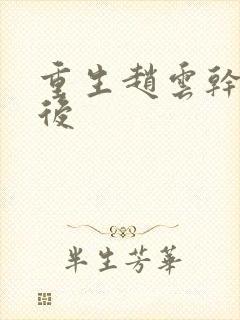 重生趙雲幹
後
半生芳華